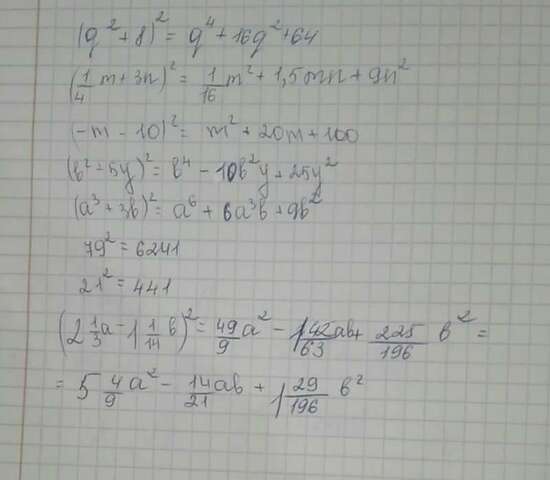 (q² + 8)² = q⁴ + 16q² + 64
(1/4 m + 3n)² = 1/16 m² + 1,5mn + 9n²
(-m - 10)² = m² + 20m + 100
(b² - 5y)² = b⁴ - 10b²y + 25y²
(a³ + 3b)² = a⁶ + 6a³b + 9b²
79² = 6241
21² = 441
(2 1/3 a - 1 1/14 b)² = 49/9 a² - 1 42/63 ab + 225/196 b² =
= 5 4/9 a² - 14/21 ab + 1 29/196 b²